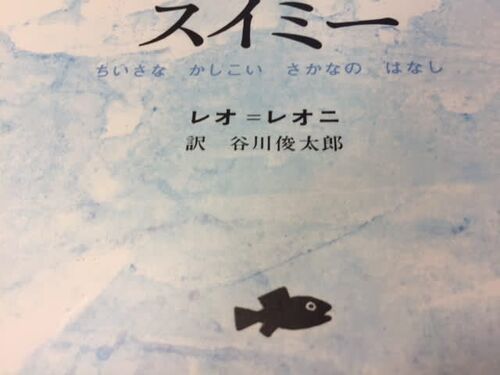 スイミー
ちいさな かしこい さかなの はなし
レオ＝レオニ
訳 谷川俊太郎